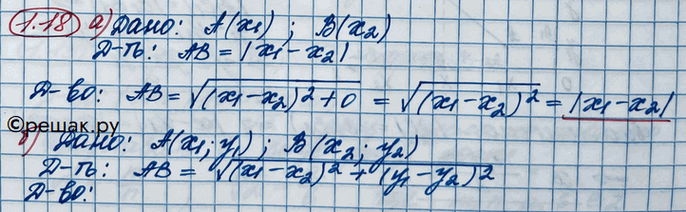 1.18 а) Дано: A(x₁) ; B(x₂)
Д-ть: AB = |x₁-x₂|
Д-во: AB = √((x₁-x₂)²+0) = √((x₁-x₂)²) = |x₁-x₂|
©решак.ру
б) Дано: A(x₁; y₁) ; B(x₂; y₂)
Д-ть: AB = √((x₁-x₂)² + (y₁-y₂)²)
Д-во: